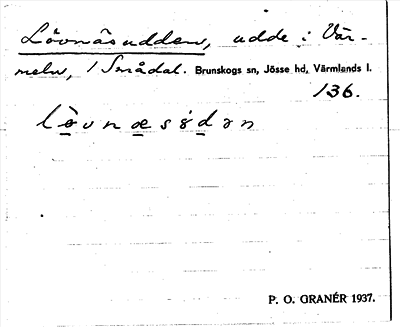 Lövnäsudden, udde i Vär-
meln, / Smådal. Brunskogs sn, Jösse hd, Värmlands l.
136.
lövnæsódən
P. O. GRANÉR 1937.